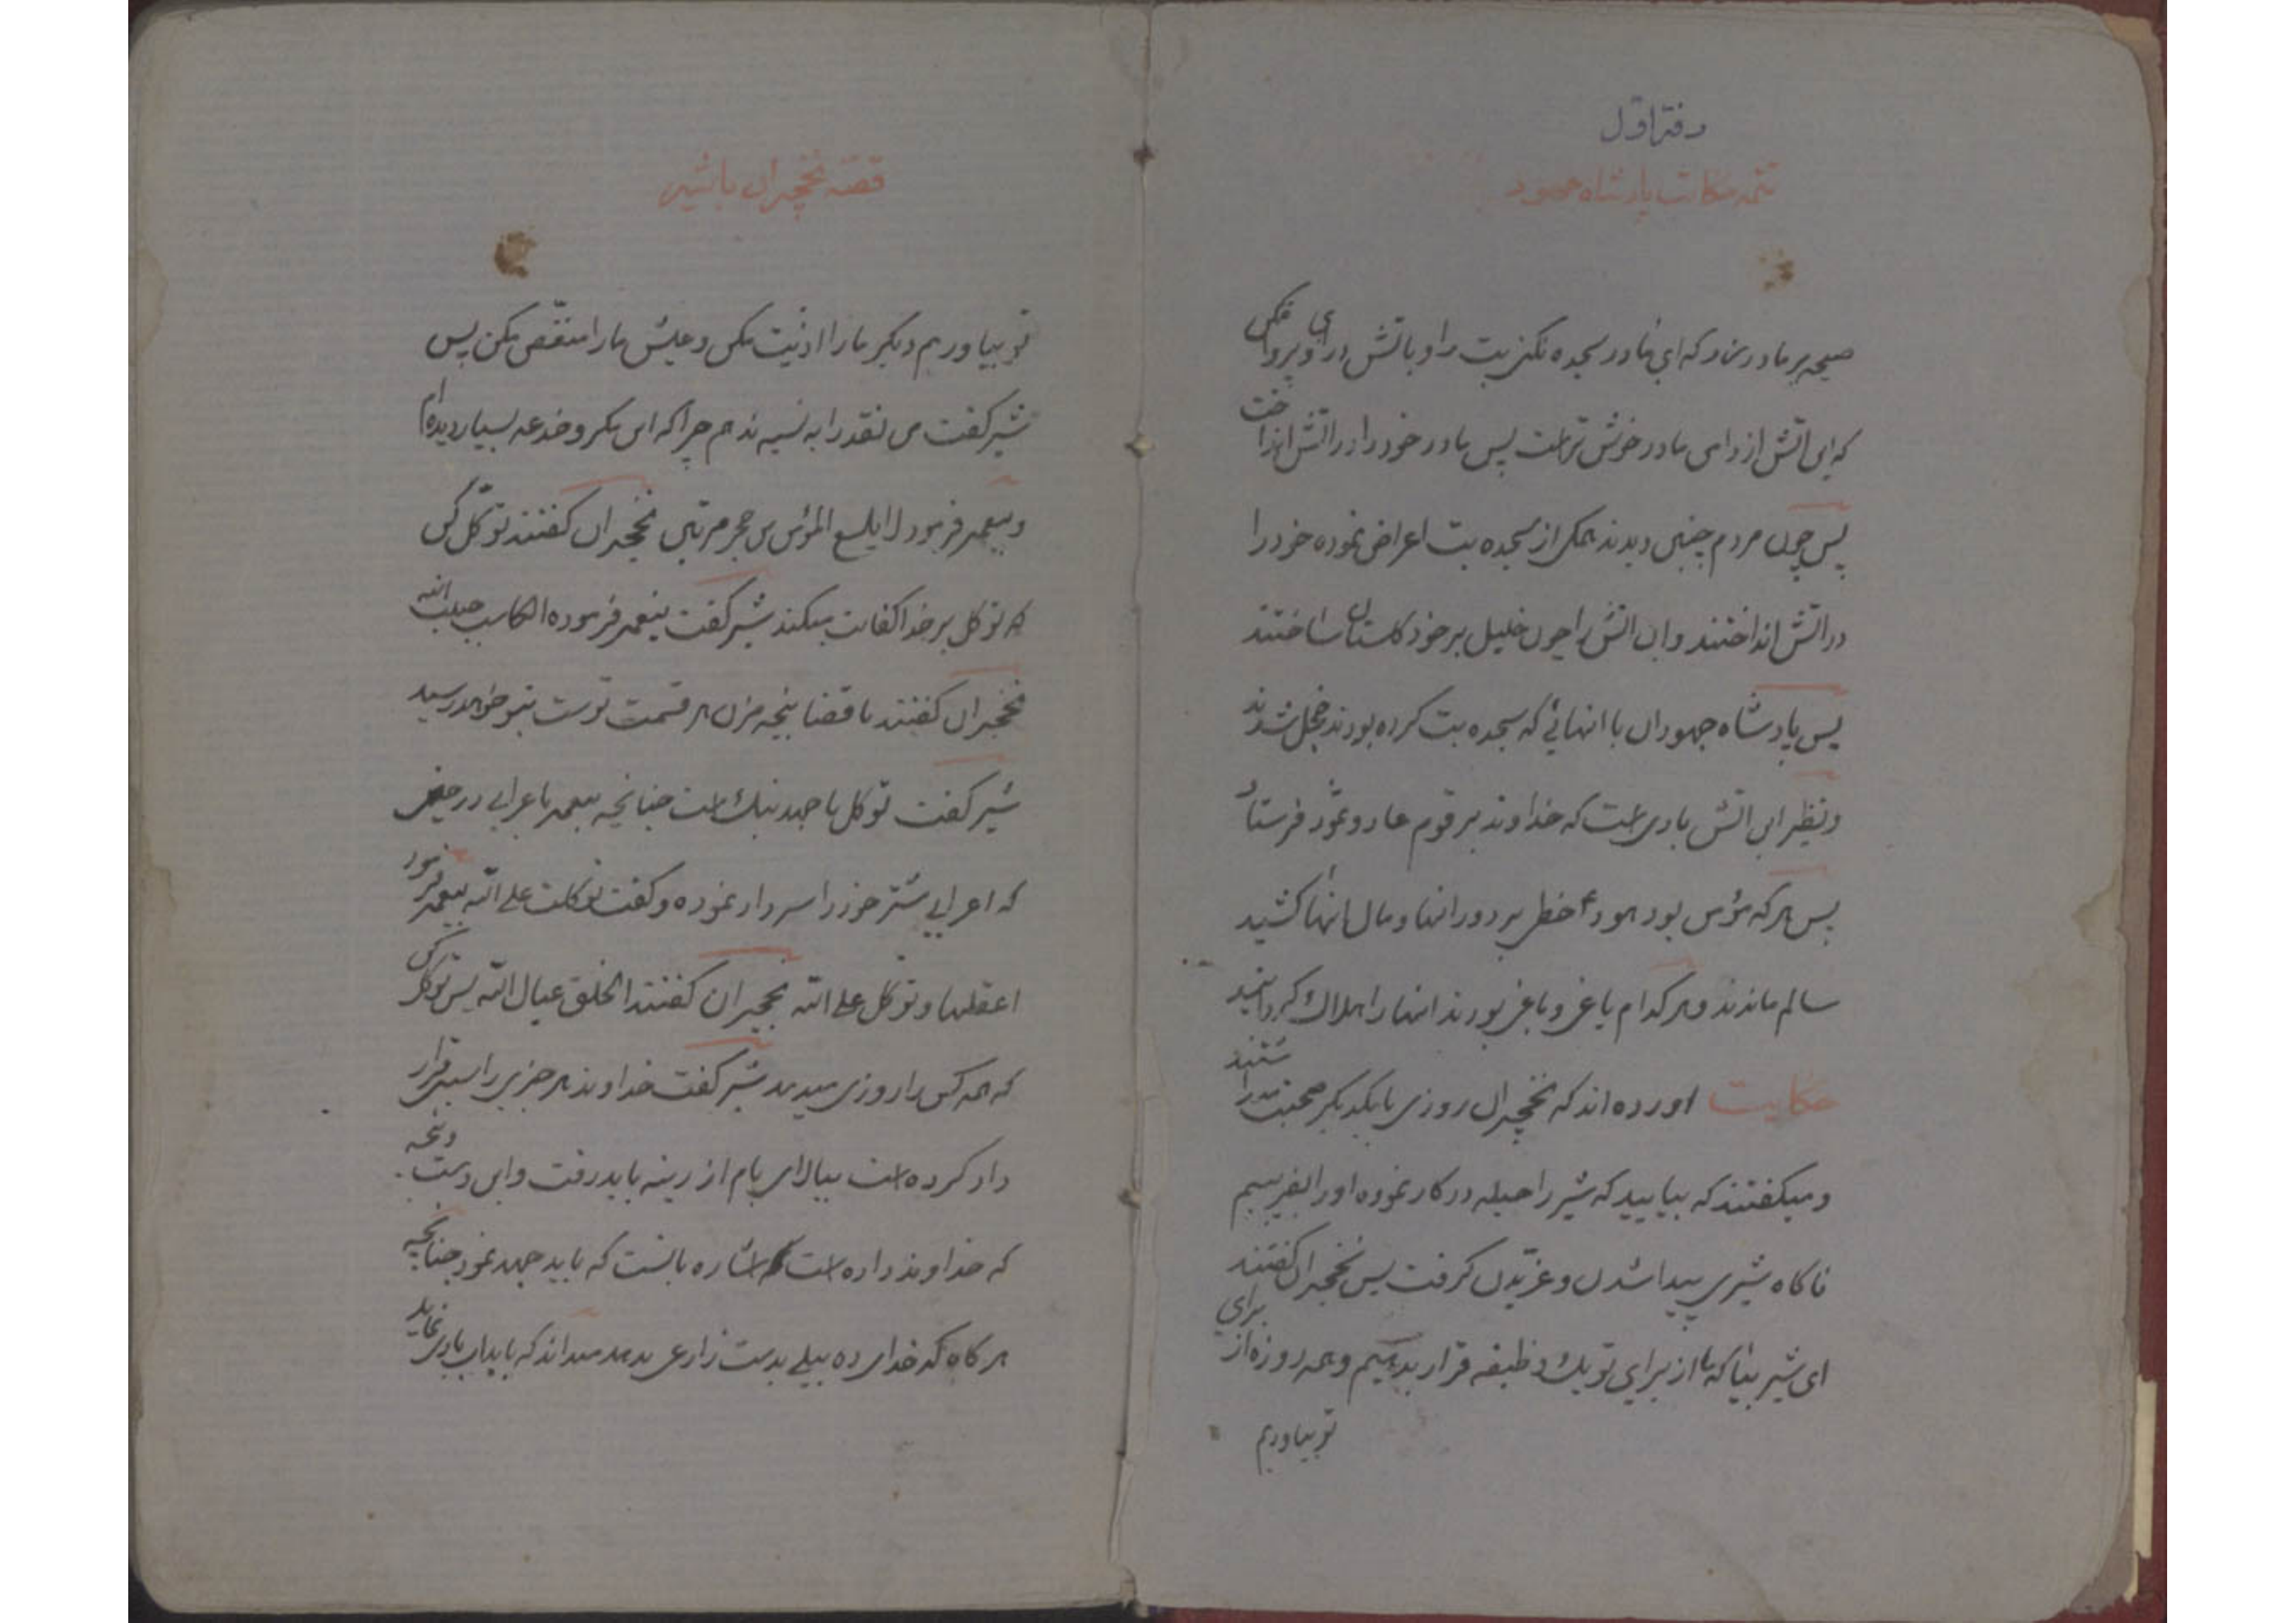 دفتر اول
تتمه حکایت پادشاه جهود
صیحه بر مادر زد که ای مادر سجده نکن بت را و باتش درای و پروا مکن
که این اتش از دامن مادر خوش تر است پس مادر خود را در اتش انداخت
پس چون مردم چنین دیدند همکی از سجده بت اعراض نموده خود را
در اتش انداختند و ان اتش را چون خلیل بر خود کلستان ساختند
پس پادشاه جهودان با انهائی که سجده بت کرده بودند خجل شدند
و نظیر این اتش بادی است که خداوند بر قوم عاد و ثمود فرستاد
پس هر که مؤمن بود هود ع خطی بر دور انها و مال انها کشید
سالم ماندند و هر کدام یاغی و باغی بودند انها را هلاک کردانید
حکایت اورده اند که نخجیران روزی با یکدیکر صحبت میداشتند
و میکفتند که بیایید که شیر را حیله در کار نموده او را بفریبیم
ناکاه شیری پیدا شدن و غریدن کرفت پس نخجیران کفتند
ای شیر بیا که ما از برای تو یک وظیفه قرار بدهیم و همه روزه از برای
تو بیاوریم
قصه نخجیران با شیر
تو بیاوریم دیکر ما را اذیت مکن و عیش ما را منغص مکن پس
شیر کفت من نقد را به نسیه ندهم چرا که این مکر و خدعه بسیار دیده ام
و پیغمبر فرمود لا یلسع المؤمن من جحر مرتین نخجیران کفتند توکل کن
که توکل بر خدا کفایت میکند شیر کفت پیغمبر فرموده الکاسب حبیب الله
نخجیران کفتند با قضا پنجه مزن هر قسمت توست بتو خواهد رسید
شیر کفت توکل با جهد نیک است چنانچه پیغمبر با عرابی در
که اعرابی شتر خود را سر داد نموده و کفت توکلت علی الله پیغمبر فرمود
اعقلها و توکل علی الله نخجیران کفتند الخلق عیال الله پس توکل کن
که همه کس را روزی میدهد شیر کفت خداوند هر چیزی را سبب قرار
داد کرده است ببالای بام از زینه باید رفت و این دست و پنجه
که خداوند داده است اشاره بانست که باید جهد نمود چنانچه
هر کاه کدخدای ده بیلی بدست زارعی بدهد میداند که باید ابیاری نماید